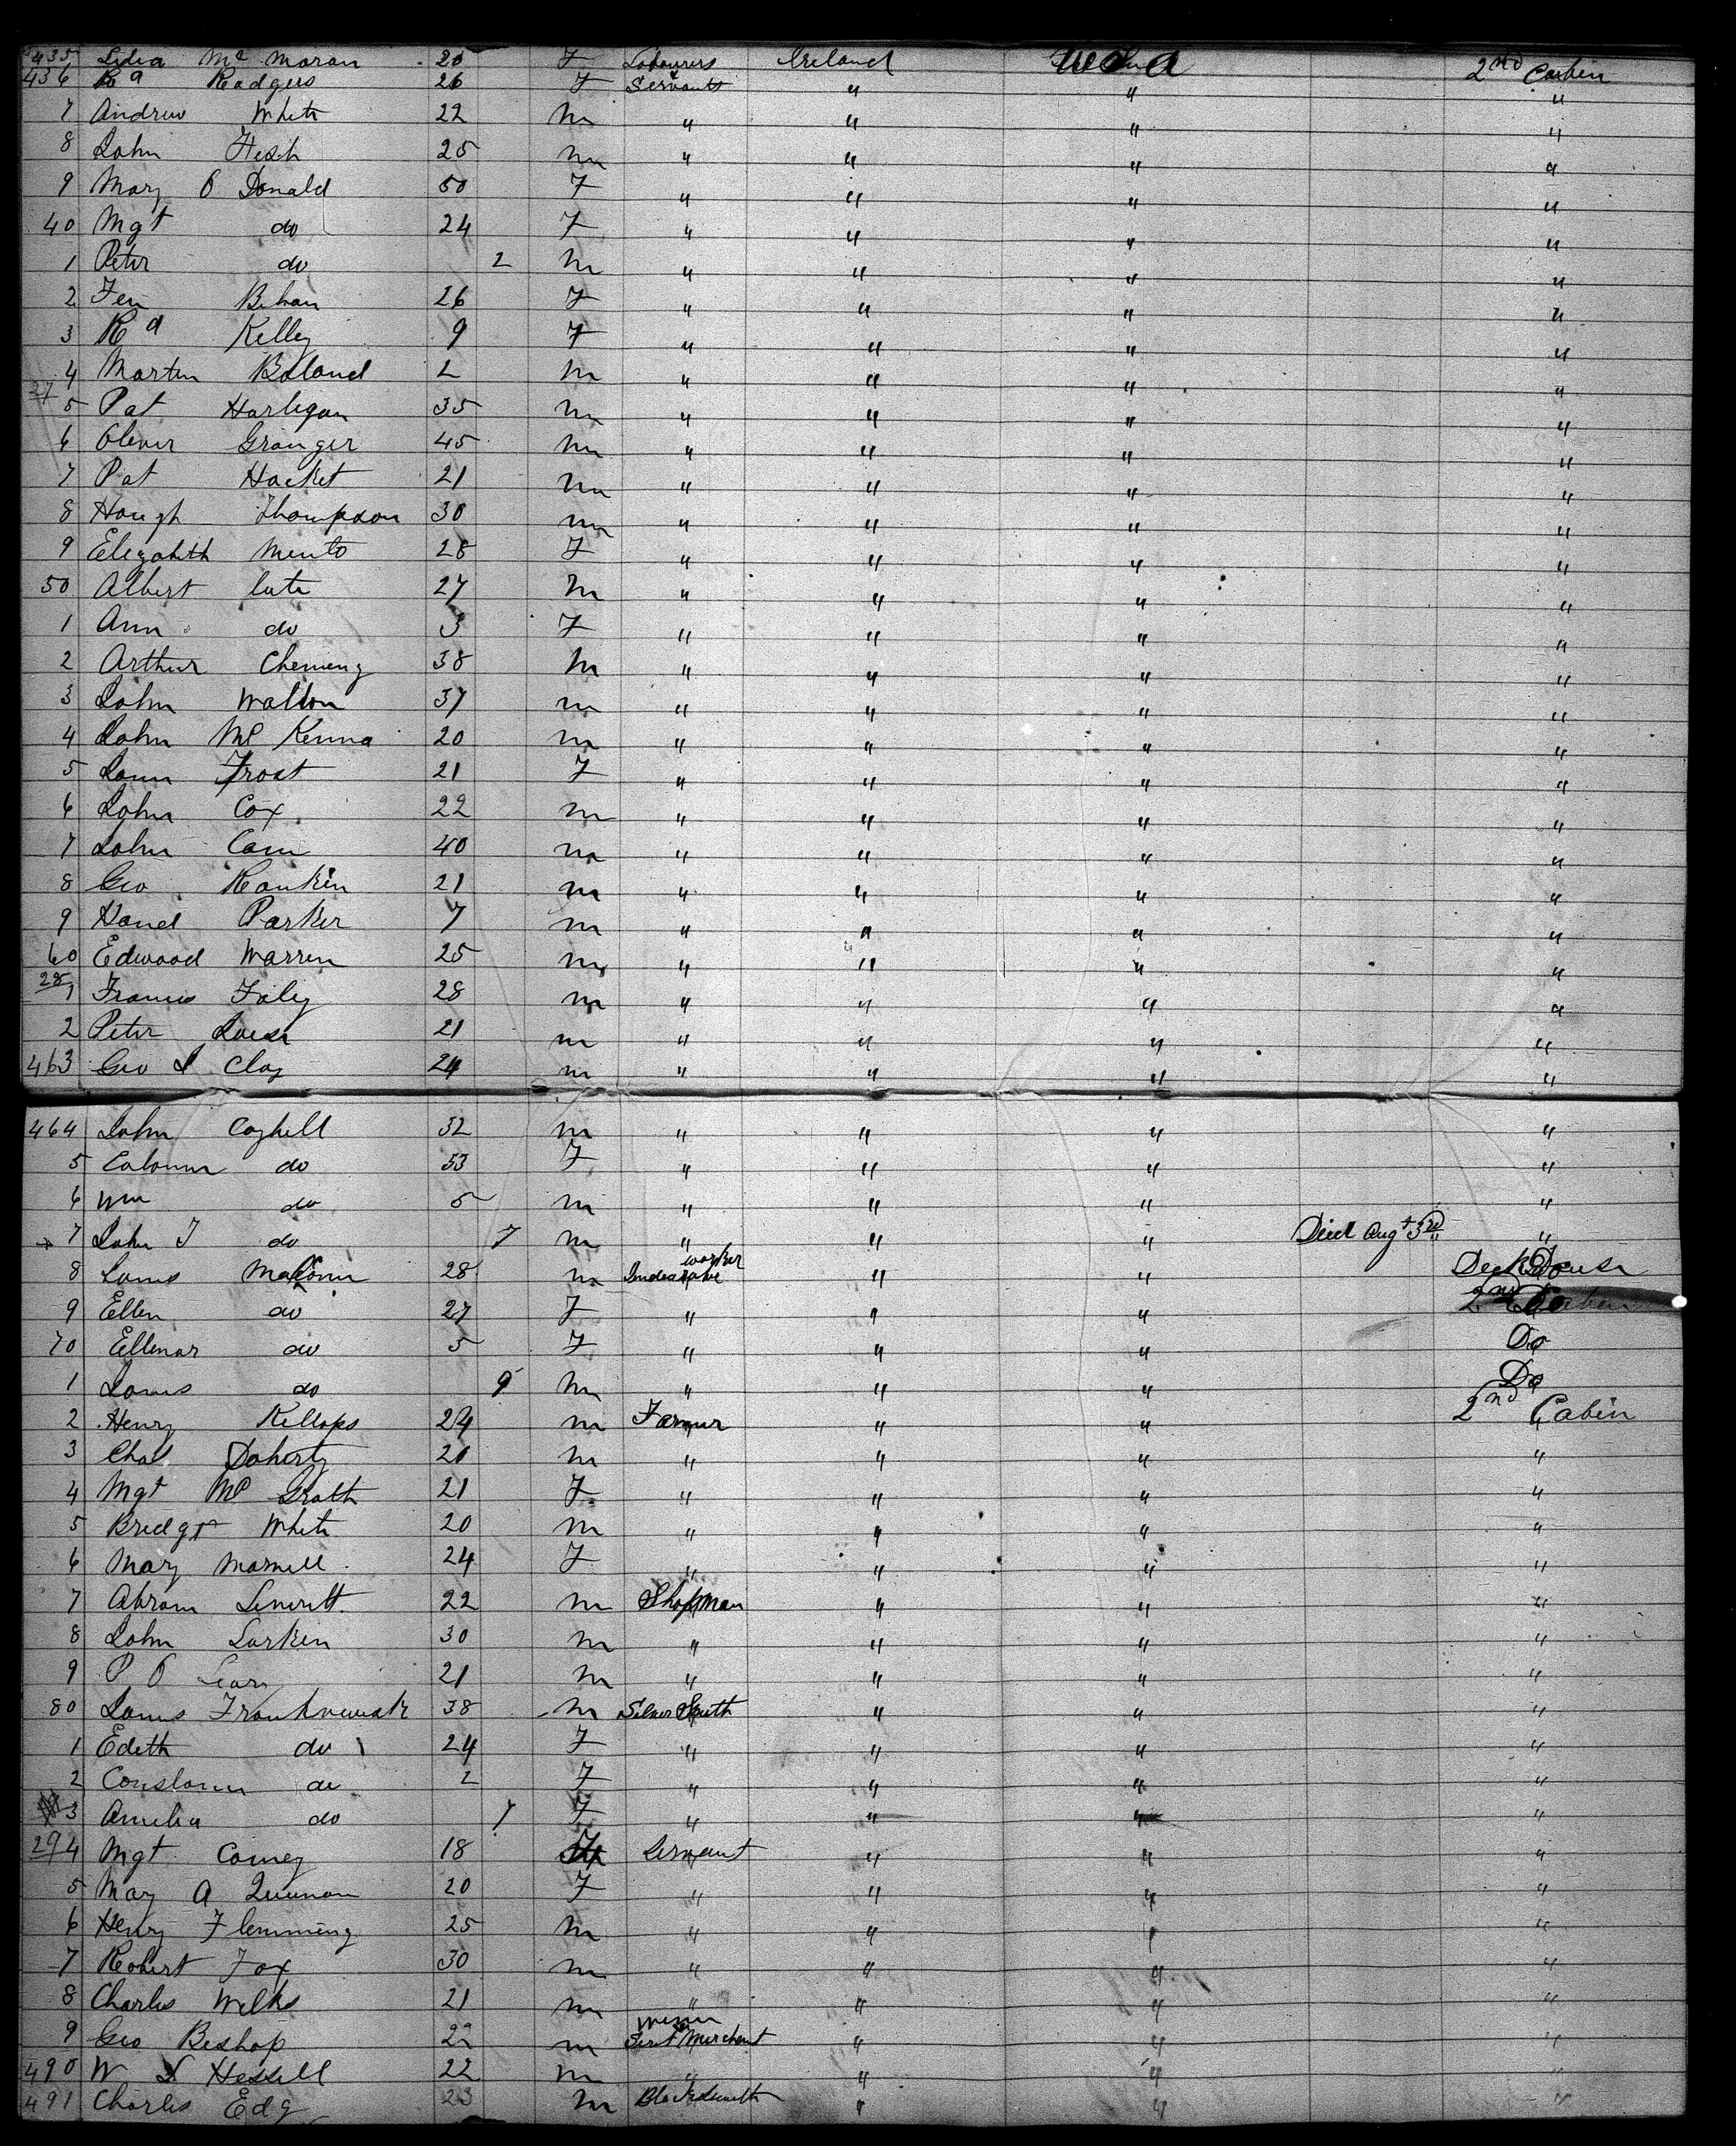 435 Lidia Mc Moran 20 F Labourers Ireland U S A 2nd Cabin
436 Rd Radgers 26 F Servants " " "
7 Andrew White 22 m " " " "
8 John 25 m " " " "
9 Mary O Donald 50 F " " " "
40 Mgt do 24 F " " " "
1 Peter do 2 m " " " "
2 Behan 26 F " " " "
3 Rd Kelley 9 F " " " "
4 Martin Boland 2 m " " " "
27
5 Pat Hartigan 35 m " " " "
6 Oliver Granger 45 m " " " "
7 Pat Hacket 21 m " " " "
8 Hough Thompson 30 m " " " "
9 Elezabith 28 F " " " "
50 Albert 27 m " " " "
1 Ann do 3 F " " " "
2 Arthur 38 m " " " "
3 John Walton 37 m " " " "
4 John Mc Kenna 20 m " " " "
5 Frost 21 F " " " "
6 John Cox 22 m " " " "
7 John 40 m " " " "
8 Geo Rankin 21 m " " " "
9 Parker 7 m " " " "
60 Edwaod Warren 25 m " " " "
28
1 Francis Foley 28 m " " " "
2 Peter 21 m " " " "
463 Geo J Clay 24 m " " " "
464 John Coghell 32 m " " " "
5 do 33 F " " " "
6 Wm do 5 m " " " "
7 John J do 7 m " " " Died Augt 3rd "
8 28 m worker " " Deck House
9 Ellen do 27 F " " " 2nd Cabin
70 Ellenor do 5 F " " " Do
1 do 9 m " " " Do
2 Henry Kellops 24 m Farmer " " 2nd Cabin
3 Chas Doherty 20 m " " " "
4 Mgt Mc Grath 21 F " " " "
5 Bridgt White 20 m " " " "
6 Mary 24 F " " " "
7 Abram 22 m Shopman " " "
8 John Larken 30 m " " " "
9 P O 21 m " " " "
80 38 m Silver Smith " " "
1 Edith do 24 F " " " "
2 do 2 F " " " "
3 Amelia do 7 F " " " "
29
4 Mgt 18 F Servant " " "
5 Mary A 20 F " " " "
6 Henry Flemming 25 m " " " "
7 Robert Fox 30 m " " " "
8 Charles Welks 21 m " " " "
9 Geo Beshop 22 m Merchant " " "
490 W J Hessell 22 m " " " "
491 Charles Edg 23 m Blacksmith " " "